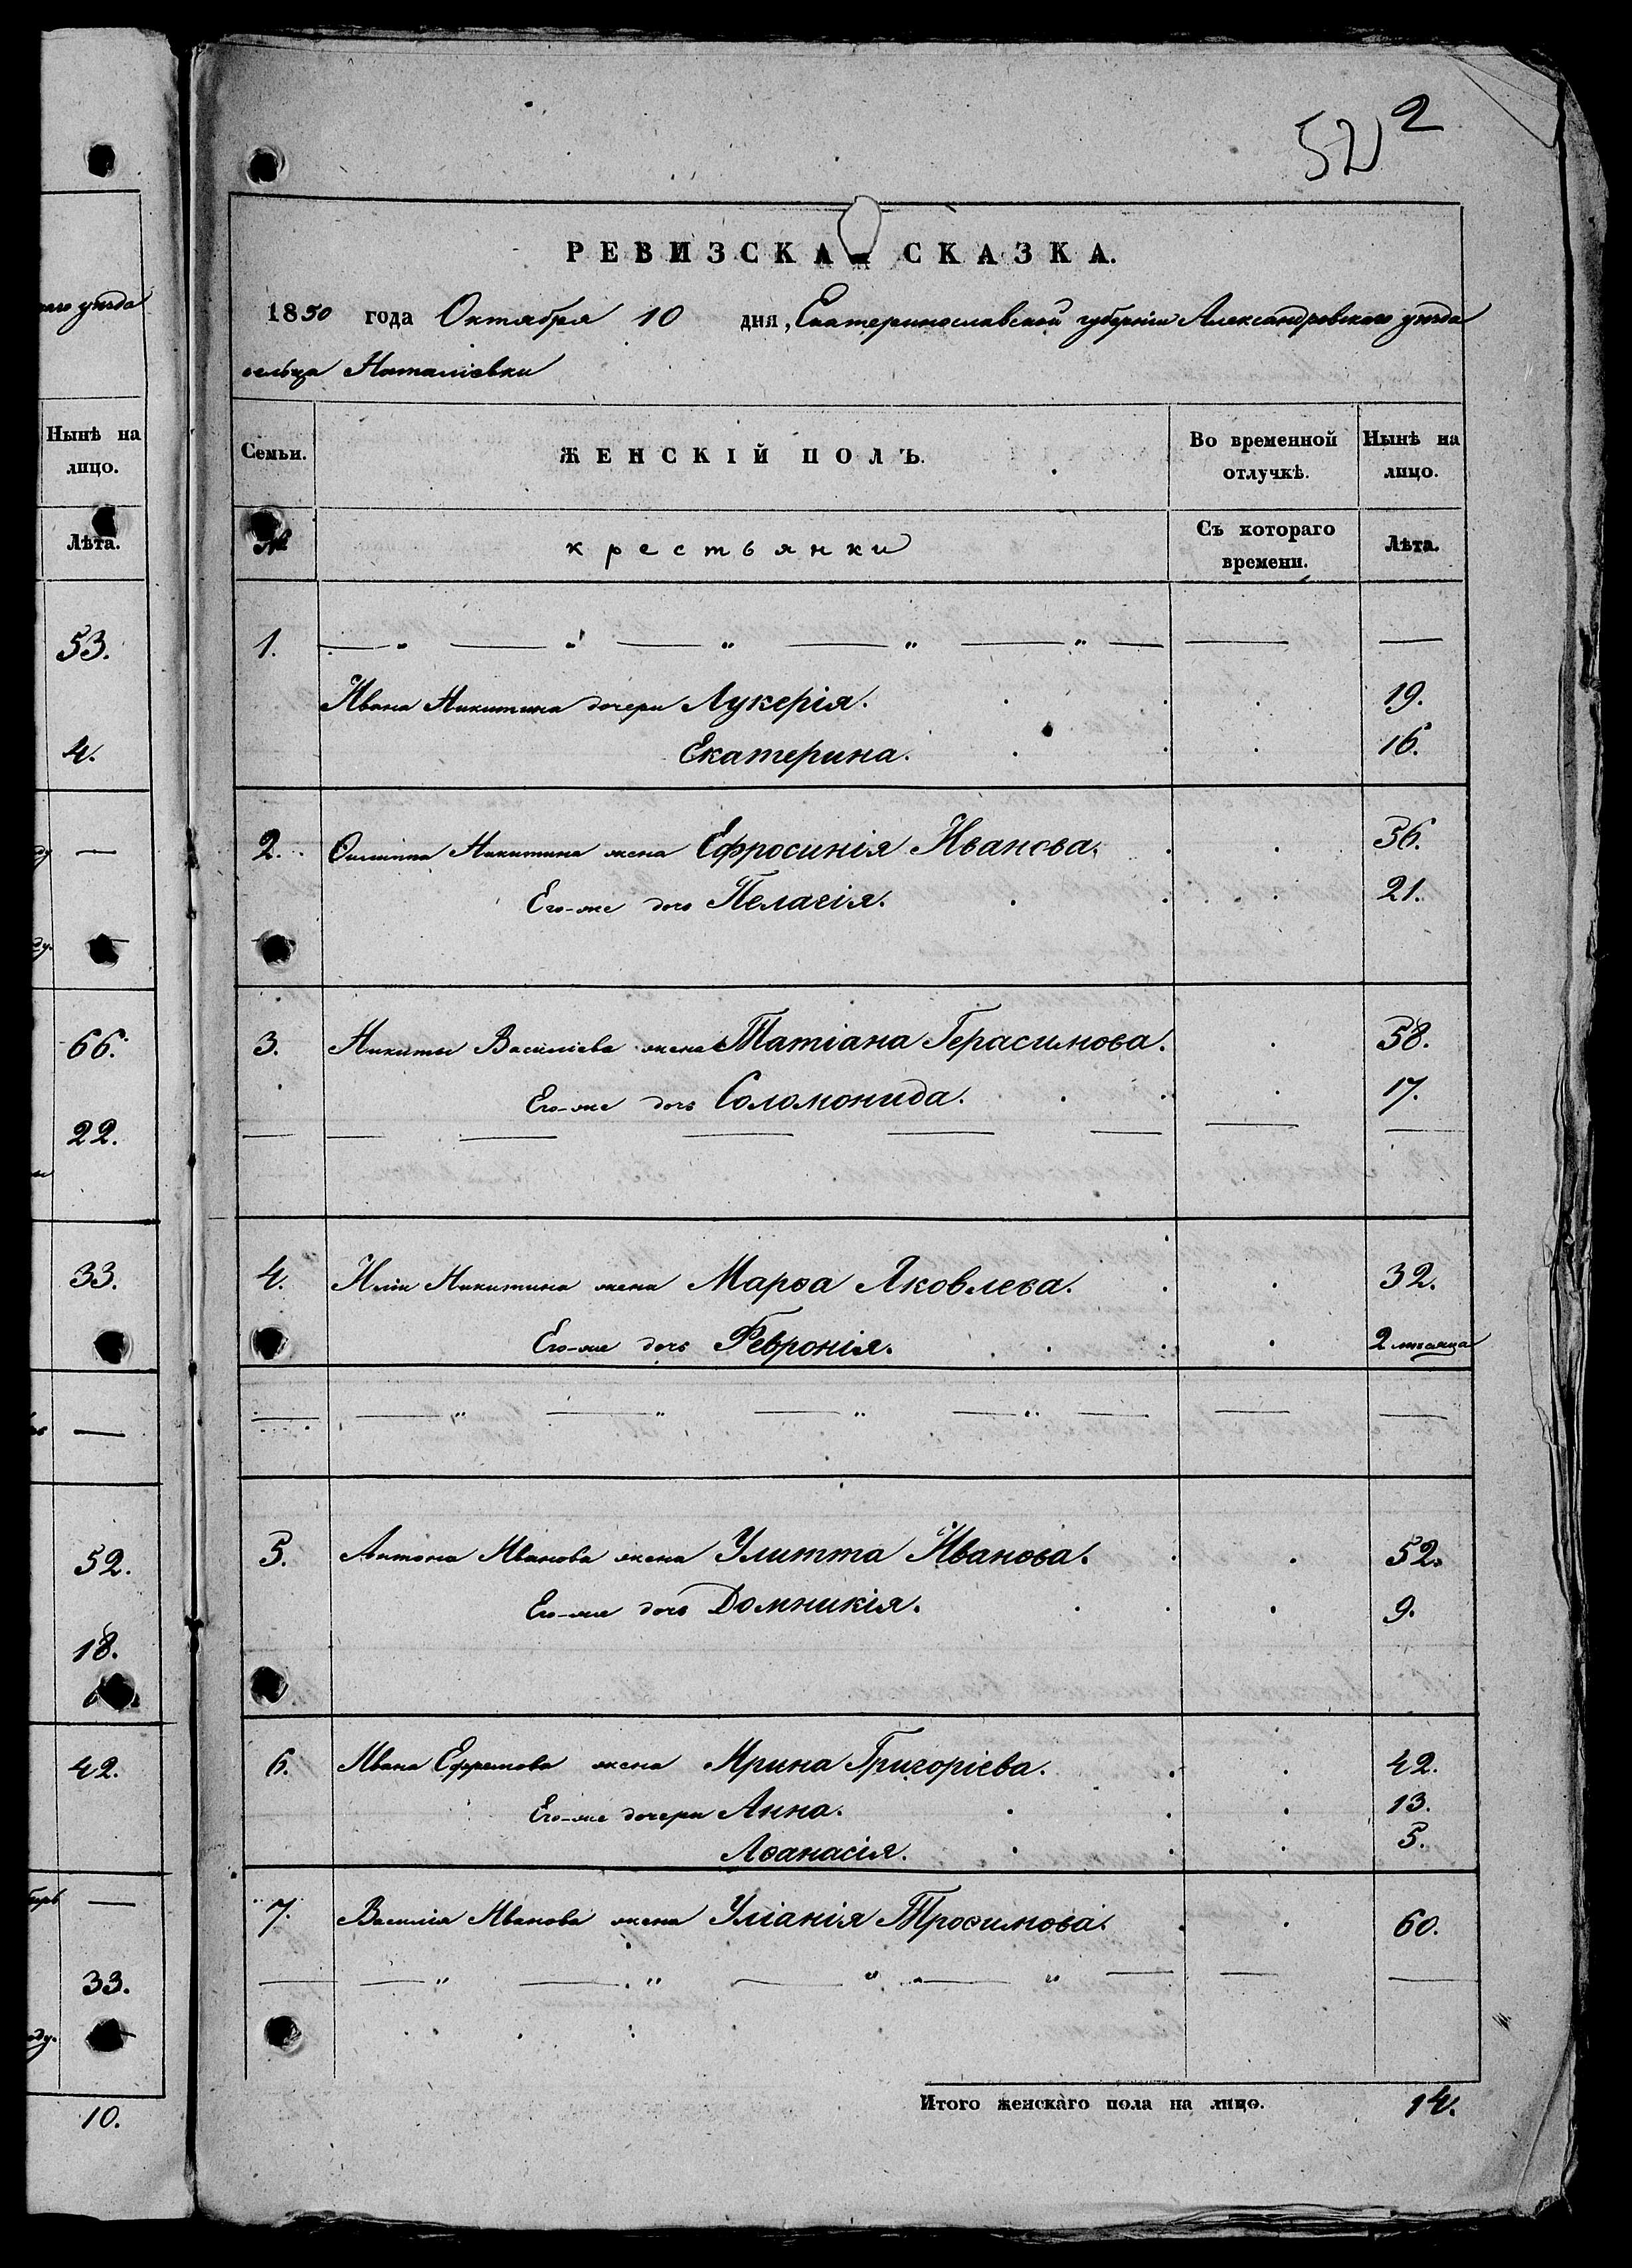 52 2
РЕВИЗСКА СКАЗКА.
1850 года Октября 10 дня, Екатеринославской губерніи Александровскаго уѣзда
сельца Наталіевки
Семьи. ЖЕНСКІЙ ПОЛЪ. Во временной отлучкѣ. Нынѣ на лицо.
№ крестьянки Съ котораго времени. Лѣта.
1.
Ивана Никитина дочери Лукерія. 19.
Екатерина. 16.
2. Никитина жена Ефросинія Иванова. 56.
Его-же дочь Пелагія. 21.
3. Никиты Василіева жена Татіана Герасимова. 58.
Его-же дочь Соломонида. 17.
4. Иліи Никитина жена Марѳа Яковлева. 32.
Его-же дочь Февронія. 2 мѣсяца
5. Антона Иванова жена Улитта Иванова. 52.
Его-же дочь Домникія. 9.
6. Ивана Ефремова жена Ирина Григоріева. 42.
Его-же дочери Анна. 13.
Аѳанасія. 5.
7. Василія Иванова жена Уліанія Трофимова. 60.
Итого женскаго пола на лицо. 14.
уѣзда
Нынѣ на
лицо.
Лѣта.
53.
4.
66.
22.
33.
52.
18.
42.
33.
10.